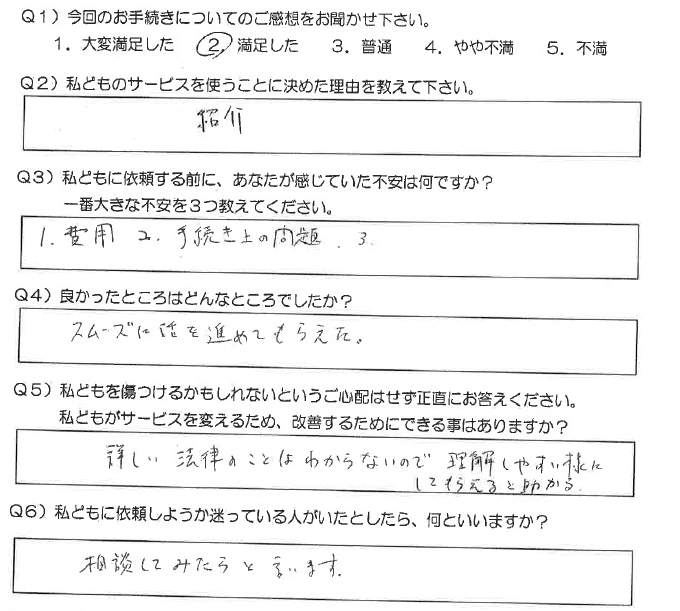 Q1）今回のお手続きについてのご感想をお聞かせ下さい。
1．大変満足した　2．満足した　3．普通　4．やや不満　5．不満
Q2）私どものサービスを使うことに決めた理由を教えて下さい。
紹介
Q3）私どもに依頼する前に、あなたが感じていた不安は何ですか？
一番大きな不安を3つ教えてください。
1. 費用　2. 手続き上の問題　3.
Q4）良かったところはどんなところでしたか？
スムーズに話を進めてもらえた。
Q5）私どもを傷つけるかもしれないというご心配はせず正直にお答えください。
私どもがサービスを変えるため、改善するためにできる事はありますか？
詳しい 法律のことはわからないので 理解しやすい様に
してもらえると助かる.
Q6）私どもに依頼しようか迷っている人がいたとしたら、何といいますか？
相談してみたらと言います.